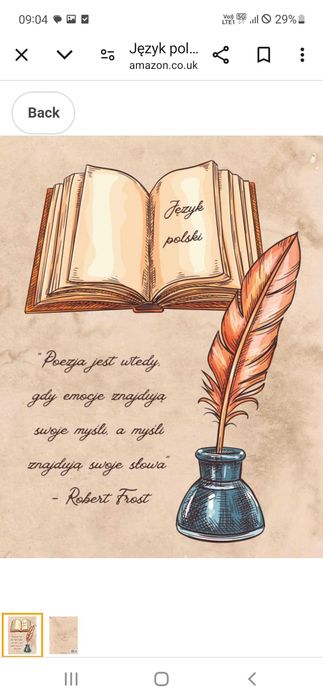 09:04
Vo))
LTE1
5G
29%
Język pol...
amazon.co.uk
Back
Język
polski
"Poezja jest wtedy,
gdy emocje znajdują
swoje myśli, a myśli
znajdują swoje słowa"
- Robert Frost